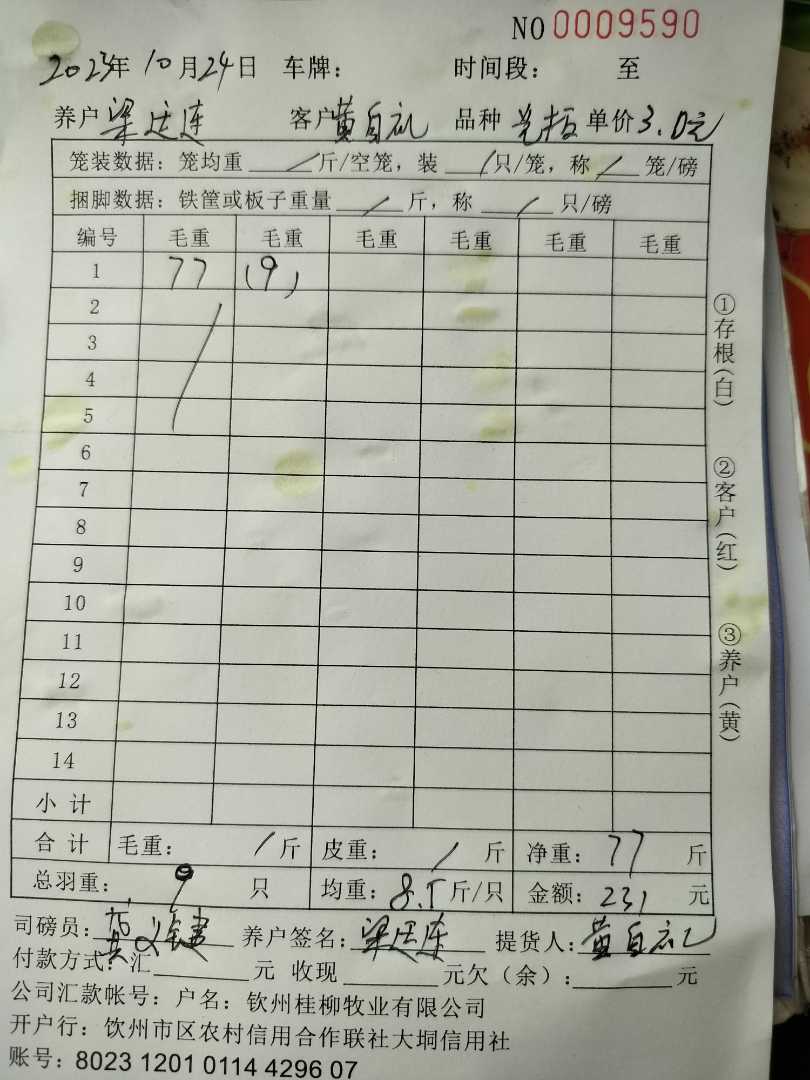 NO 0009590
2023年 10月24日 车牌： 时间段： 至
养户 梁 连 客户 黄自 品种 单价3.0元
笼装数据：笼均重 / 斤/空笼，装 / 只/笼，称 / 笼/磅
捆脚数据：铁筐或板子重量 / 斤，称 / 只/磅
编号 毛重 毛重 毛重 毛重 毛重 毛重
1 77 (9)
2
3
4
5
6
7
8
9
10
11
12
13
14
小 计
合 计 毛重： / 斤 皮重： / 斤 净重： 77 斤
总羽重： 9 只 均重：8.5斤/只 金额：231 元
司磅员： 黄 养户签名：梁 连 提货人：黄自
付款方式：汇 元 收现 元欠（余）： 元
公司汇款帐号：户名：钦州桂柳牧业有限公司
开户行：钦州市区农村信用合作联社大垌信用社
账号：8023 1201 0114 4296 07
①存根(白)
②客户(红)
③养户(黄)